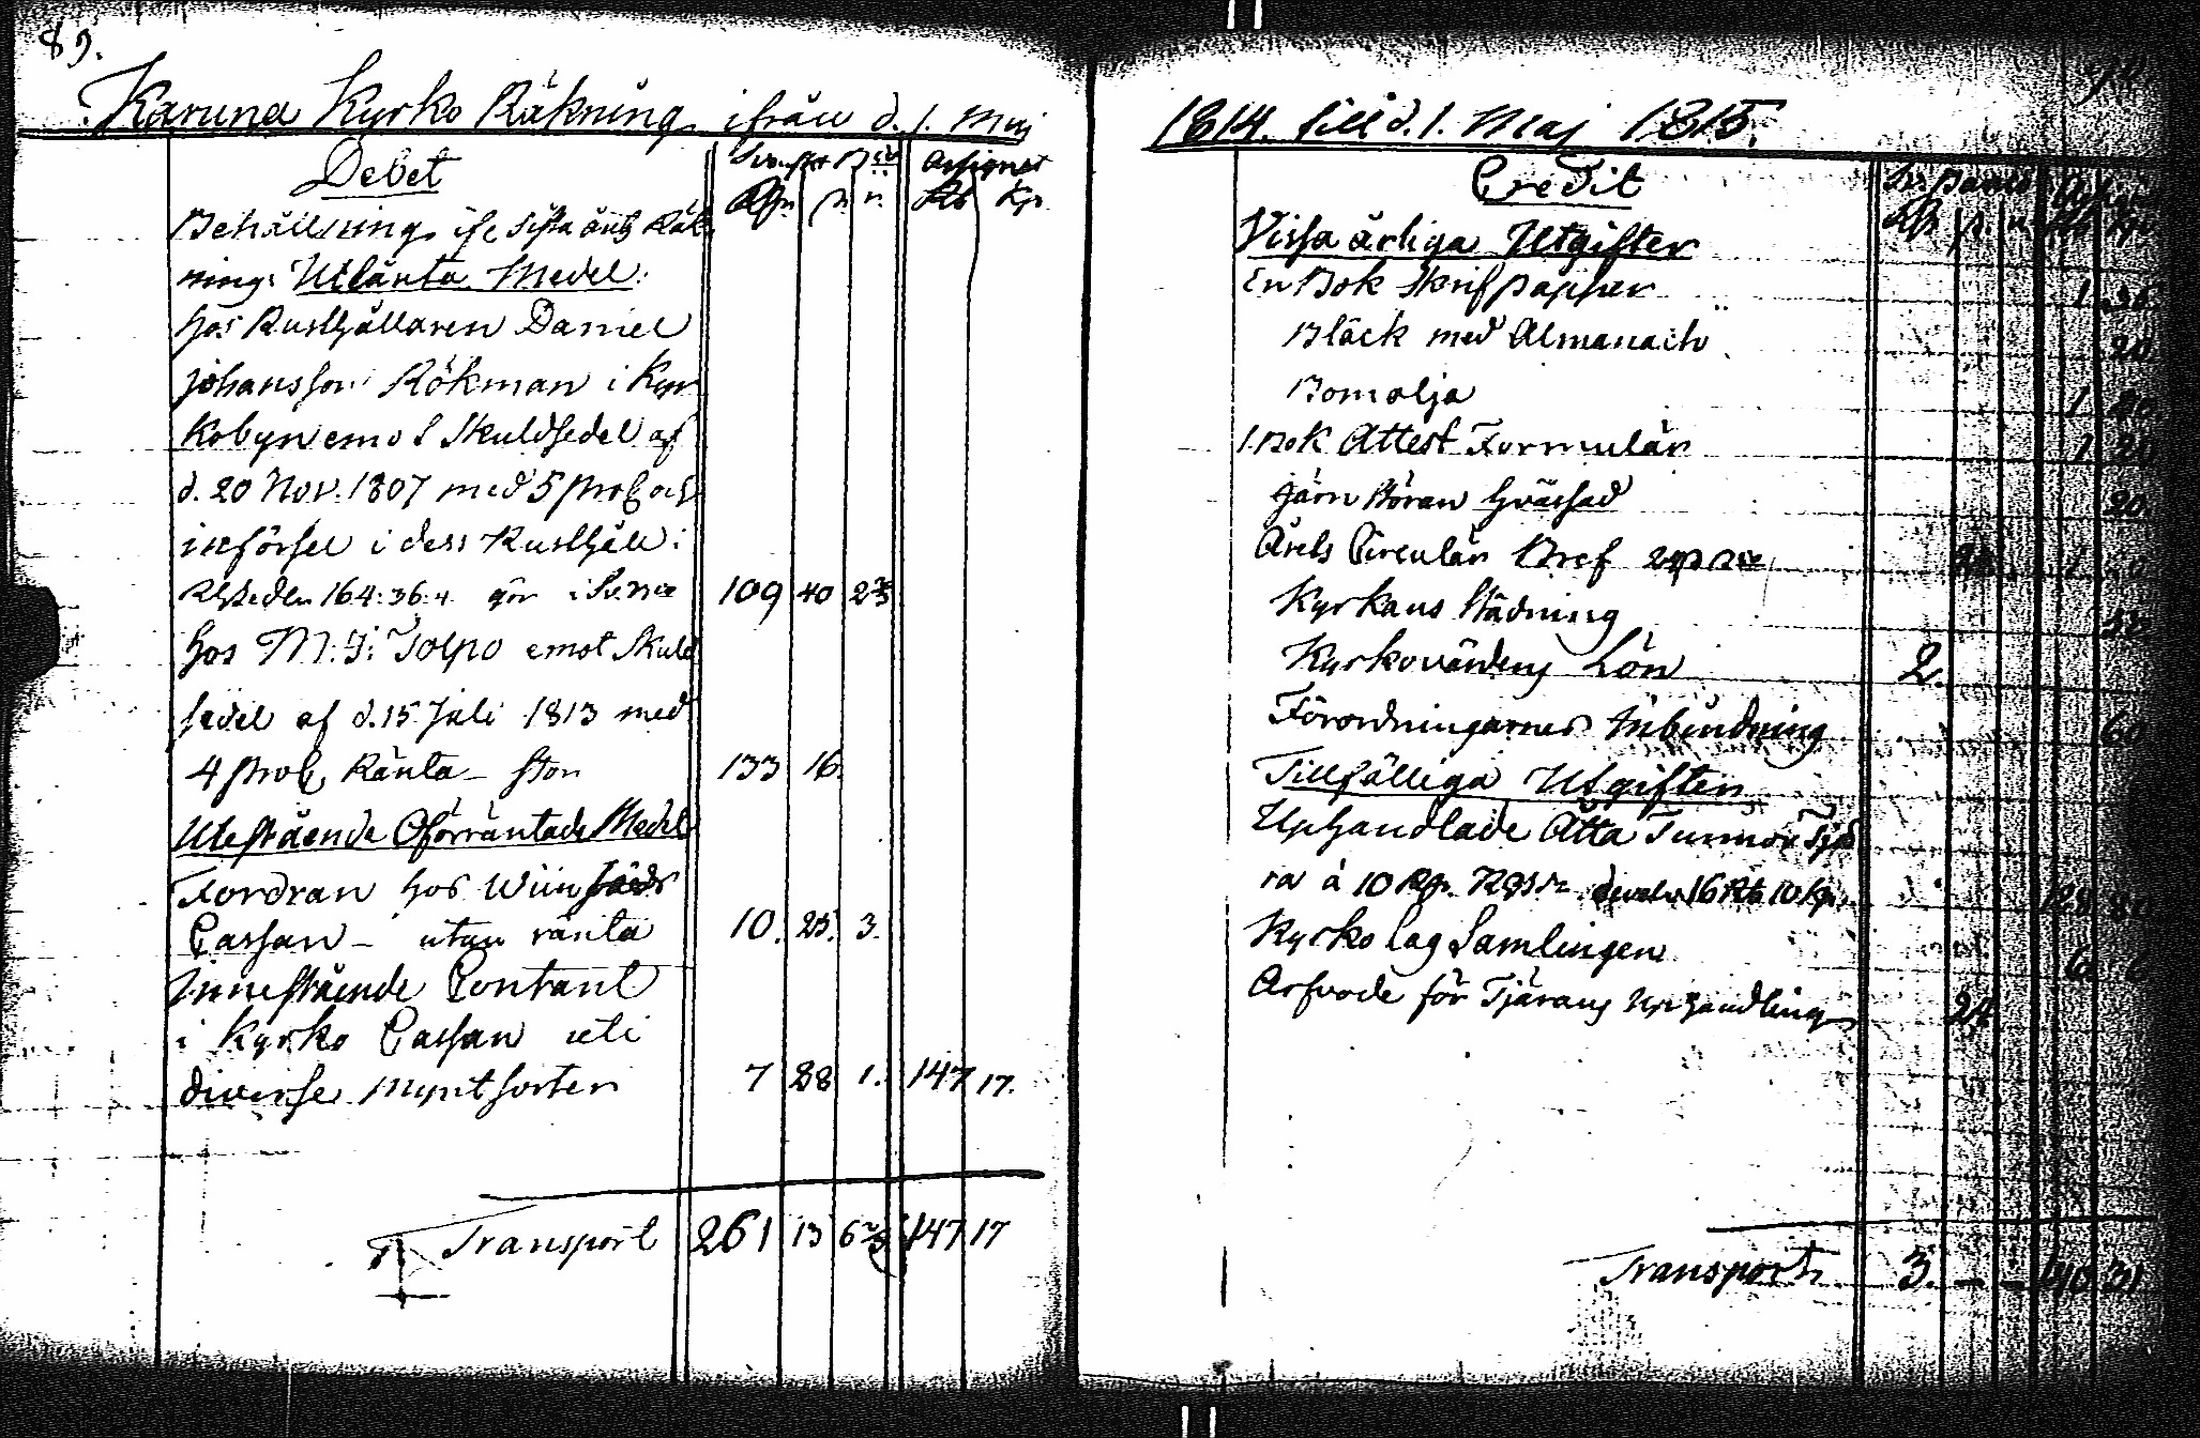 89.
Karuna Kyrko Räkning ifrån d. 1. Maj
Debet
Rdr. s. r. Rb Kp.
Behållning ifr sista åretz Räk
ning: Utlånta Medel:
hos Rusthållaren Daniel
Johansson Rökman i Kyr
kobyn emot Skuldsedel af
d. 20 Nov. 1807 med 5 proC och
införsel i dess Rusthåll:
164:36:4 gör i 109 40 2 2/3
hos M: J: Tolpo emot Skuld
sedel af d. 15 Juli 1813 med
4 proC Ränta – stor 133 16.
Utestående Oförräntade Medel
Fordran hos
Cassan – utan ränta 10. 25. 3.
Innestående Contant
i Kyrko Cassan uti
diverse Myntsorter 7 28 1. 147 17.
Transport 261 13 6 2/3 147 17
1814. till d. 1. Maj 1815.
Credit
Vissa årliga Utgifter
En Bok Skrifpapper 1. 36.
Bläck med Almanach 20
Bomolja 1. 80.
1. Bok Attest Formulär 1 20
Järn Stören hvässad 20
Årets Circulär Bref
Kyrkans Städning
Kyrkovärdens Lön 2.
Förordningarnes Inbindning 60
Tillfälliga Utgifter
Uphandlade Åtta Tunnor Tjä
ra à 10 16 Rb 10 Kp.
Kyrko Lag Samlingen 6
Arfvode för Tjärans Uphandling 24
Transport 3. – –